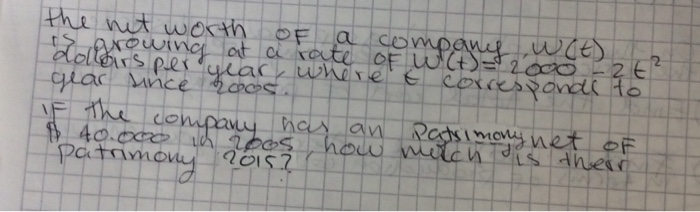 the net worth OF a company, w(t)
is growing at a rate OF w'(t)= 2000 - 2t²
dollars per year, where t corresponds to
year since 2005.
IF the company has an Patrimony net OF
$ 40.000 in 2005, how much is their
patrimony 2015?